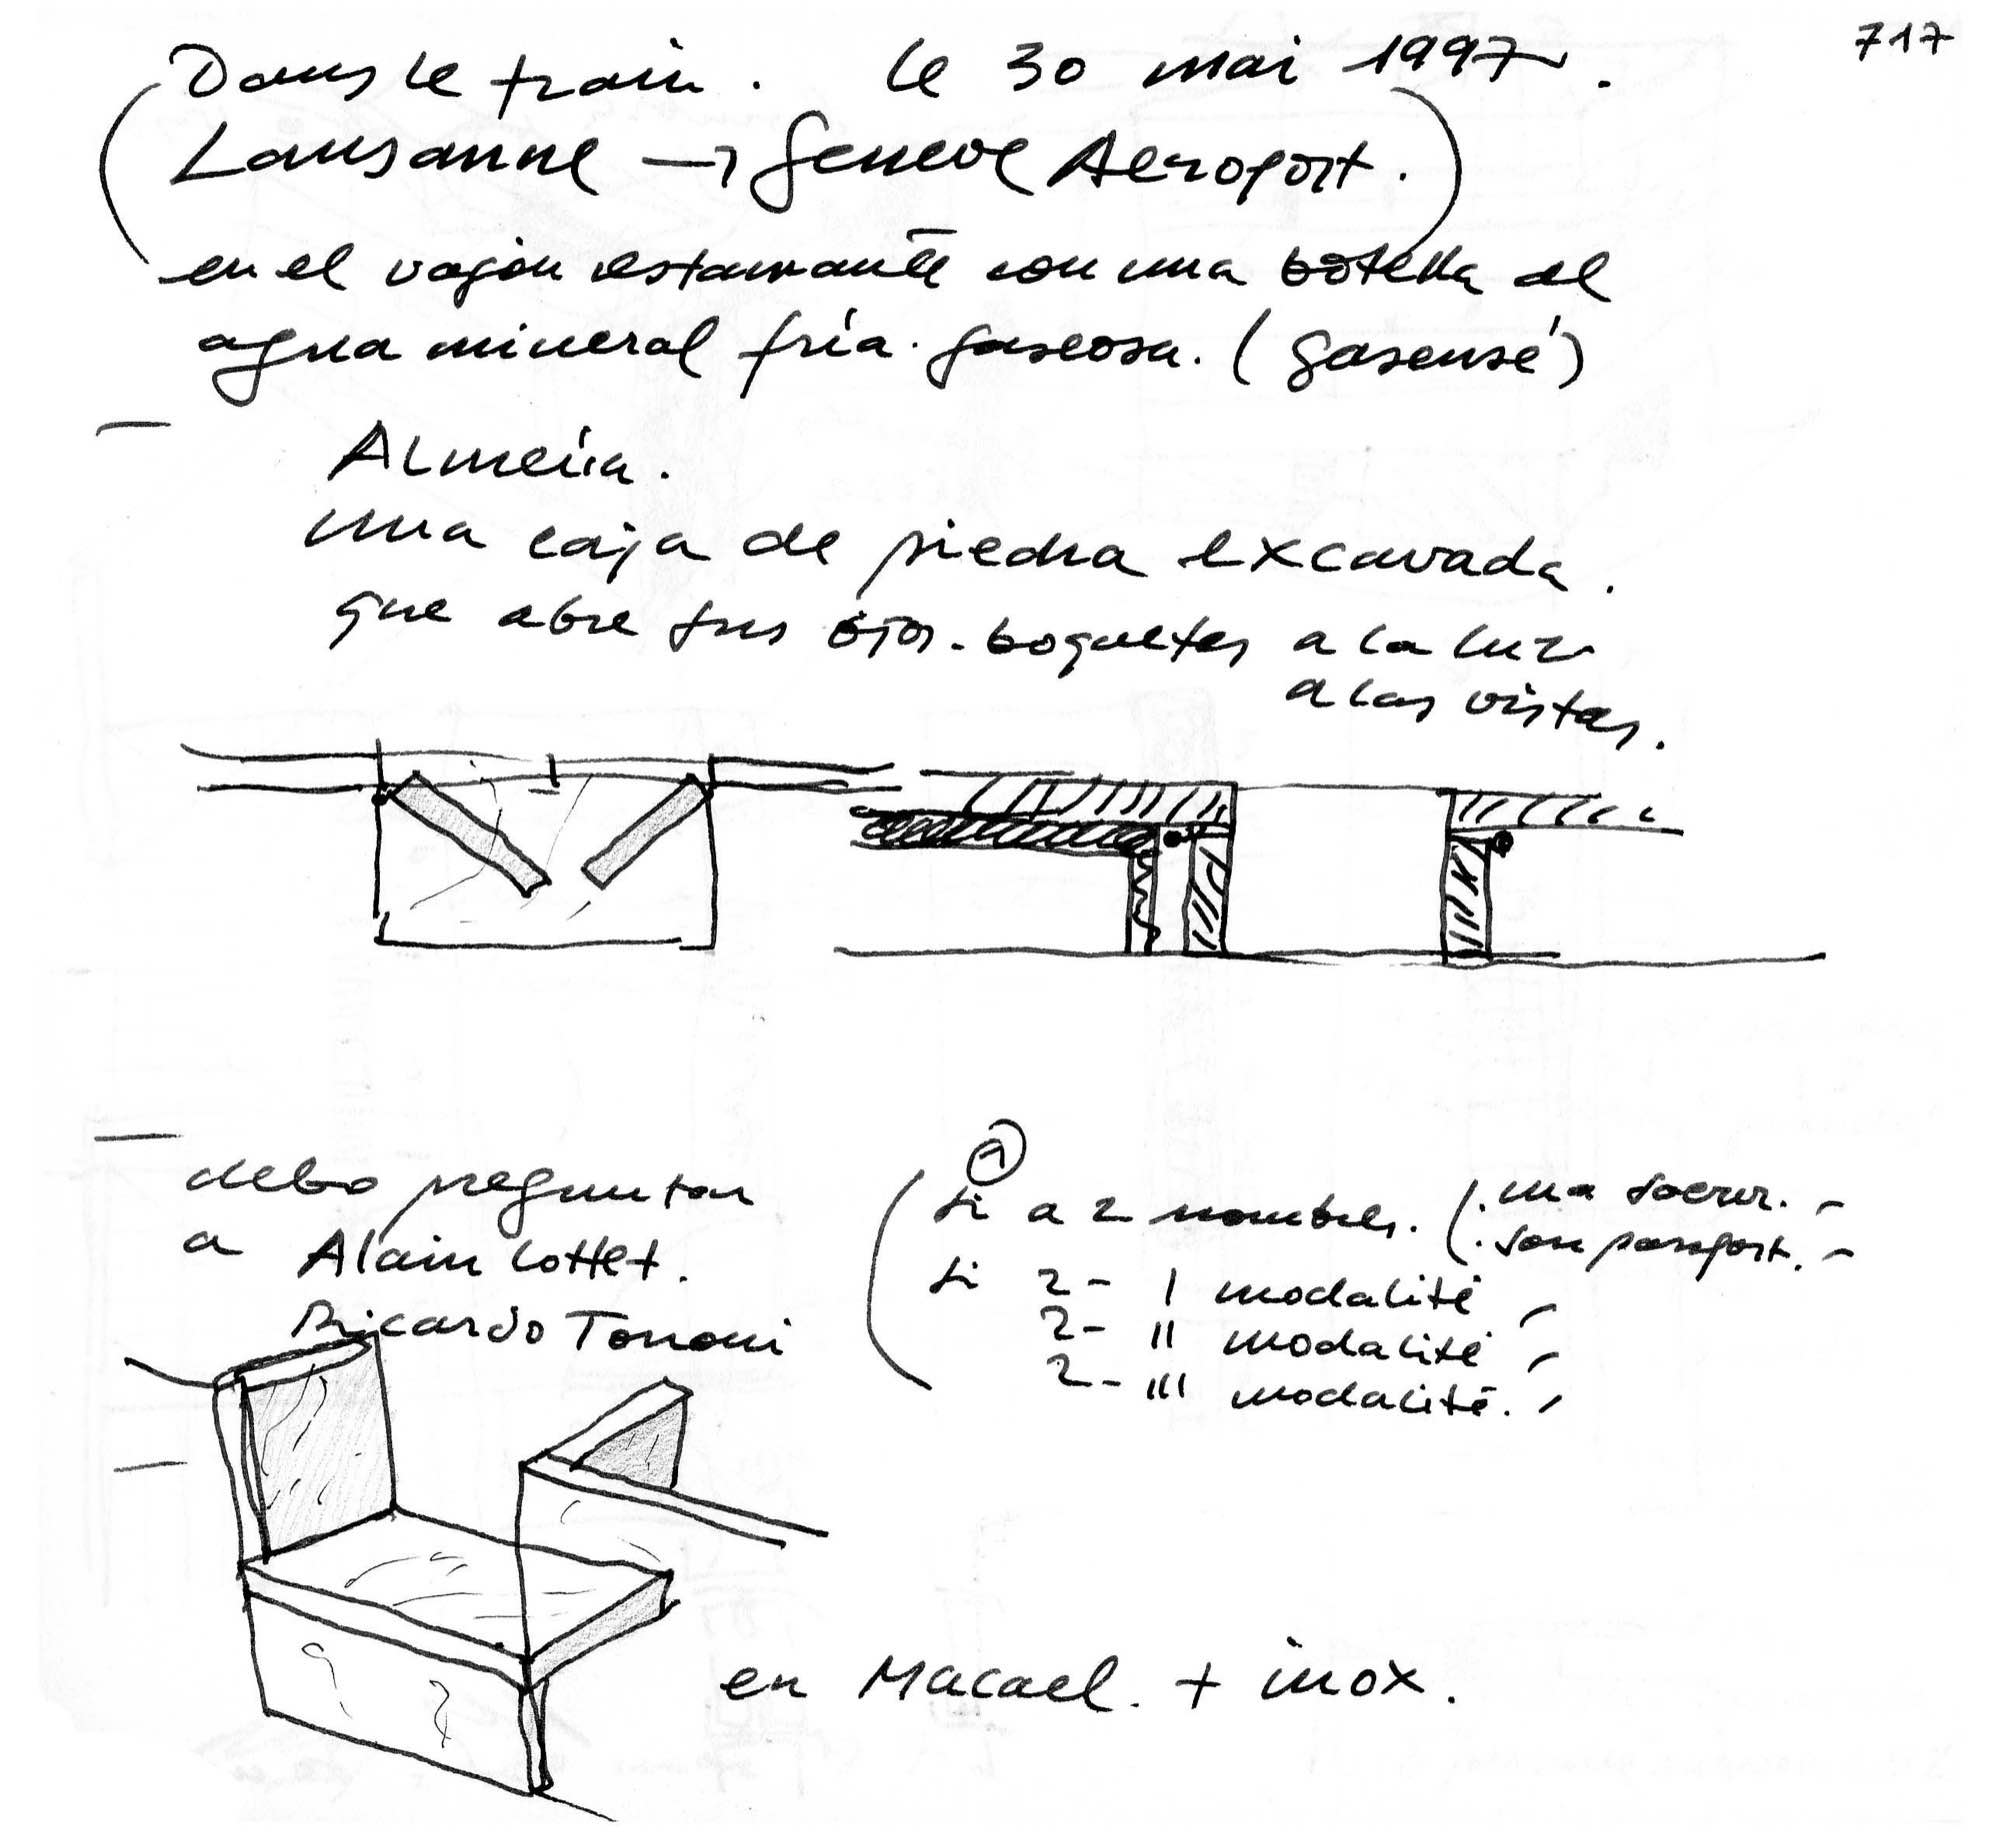 717
Dans le train. le 30 mai 1997.
Lausanne → Geneve Aeroport.
en el vagón restaurante con una botella de
agua mineral fría. gaseosa. (gasensé)
Almería.
una caja de piedra excavada.
que abre sus ojos. boquetes a la luz
a las vistas.
debo preguntar
a Alain Cottet.
Ricardo Tononi
1
si a 2 nombres. (. ma soeur.
. son passport.
si 2 - I modalité
2 - II modalité
2 - III modalité.
en Macael. + inox.